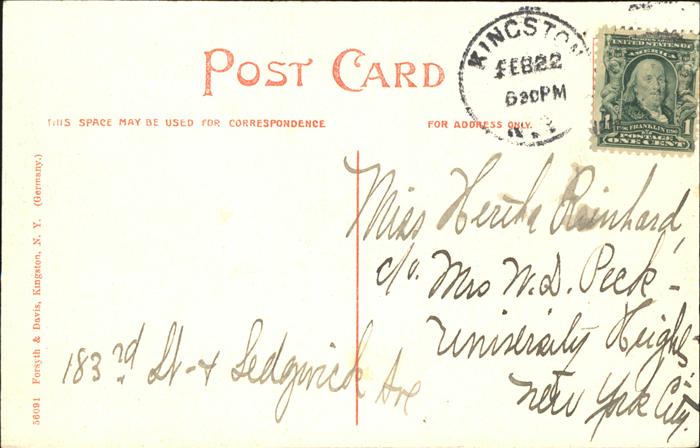 POST CARD
THIS SPACE MAY BE USED FOR CORRESPONDENCE
FOR ADDRESS ONLY.
KINGSTON
FEB 22
630PM
N.Y.
UNITED STATES OF
AMERICA
1
FRANKLIN
POSTAGE
ONE CENT
Miss Hertha Reinhard,
c/o. Mrs W. D. Peck-
University Heights
New York City.
183rd St - & Sedgwick Ave
56091 Forsyth & Davis, Kingston, N. Y. (Germany.)